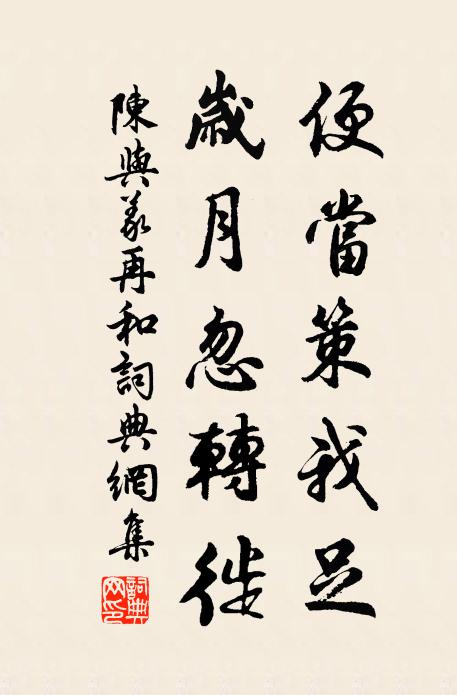 便當策我足
歲月忽轉徙
陳與義再和詞典網集
詞典